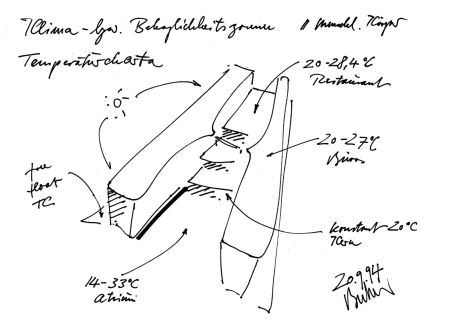 Klima - bzw. Behaglichkeitszonen
Temperaturcharta
20-28,4°C
Restaurant
20-27°C
Büros
free
float
TC
konstant 20°C
14-33°C
Atrium
20.9.94